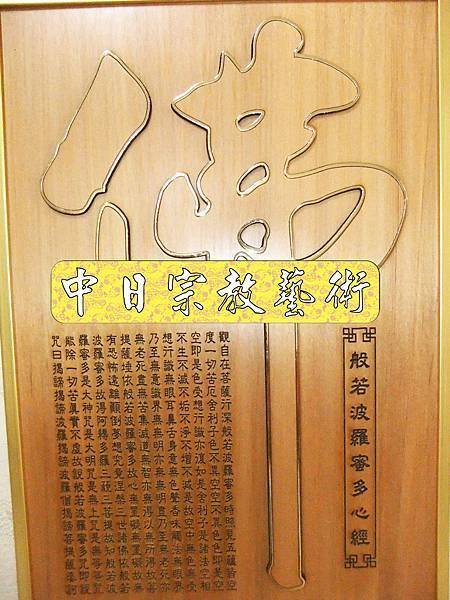 佛
中日宗教藝術
般若波羅蜜多心經
觀自在菩薩行深般若波羅蜜多時照見五蘊皆空
度一切苦厄舍利子色不異空空不異色色即是空
空即是色受想行識亦復如是舍利子是諸法空相
不生不滅不垢不淨不增不減是故空中無色無受
想行識無眼耳鼻舌身意無色聲香味觸法無眼界
乃至無意識界無無明亦無無明盡乃至無老死亦
無老死盡無苦集滅道無智亦無得以無所得故菩
提薩埵依般若波羅蜜多故心無罣礙無罣礙故無
有恐怖遠離顛倒夢想究竟涅槃三世諸佛依般若
波羅蜜多故得阿耨多羅三藐三菩提故知般若波
羅蜜多是大神咒是大明咒是無上咒是無等等咒
能除一切苦真實不虛故說般若波羅蜜多咒即說
咒曰揭諦揭諦波羅揭諦波羅僧揭諦菩提薩婆訶